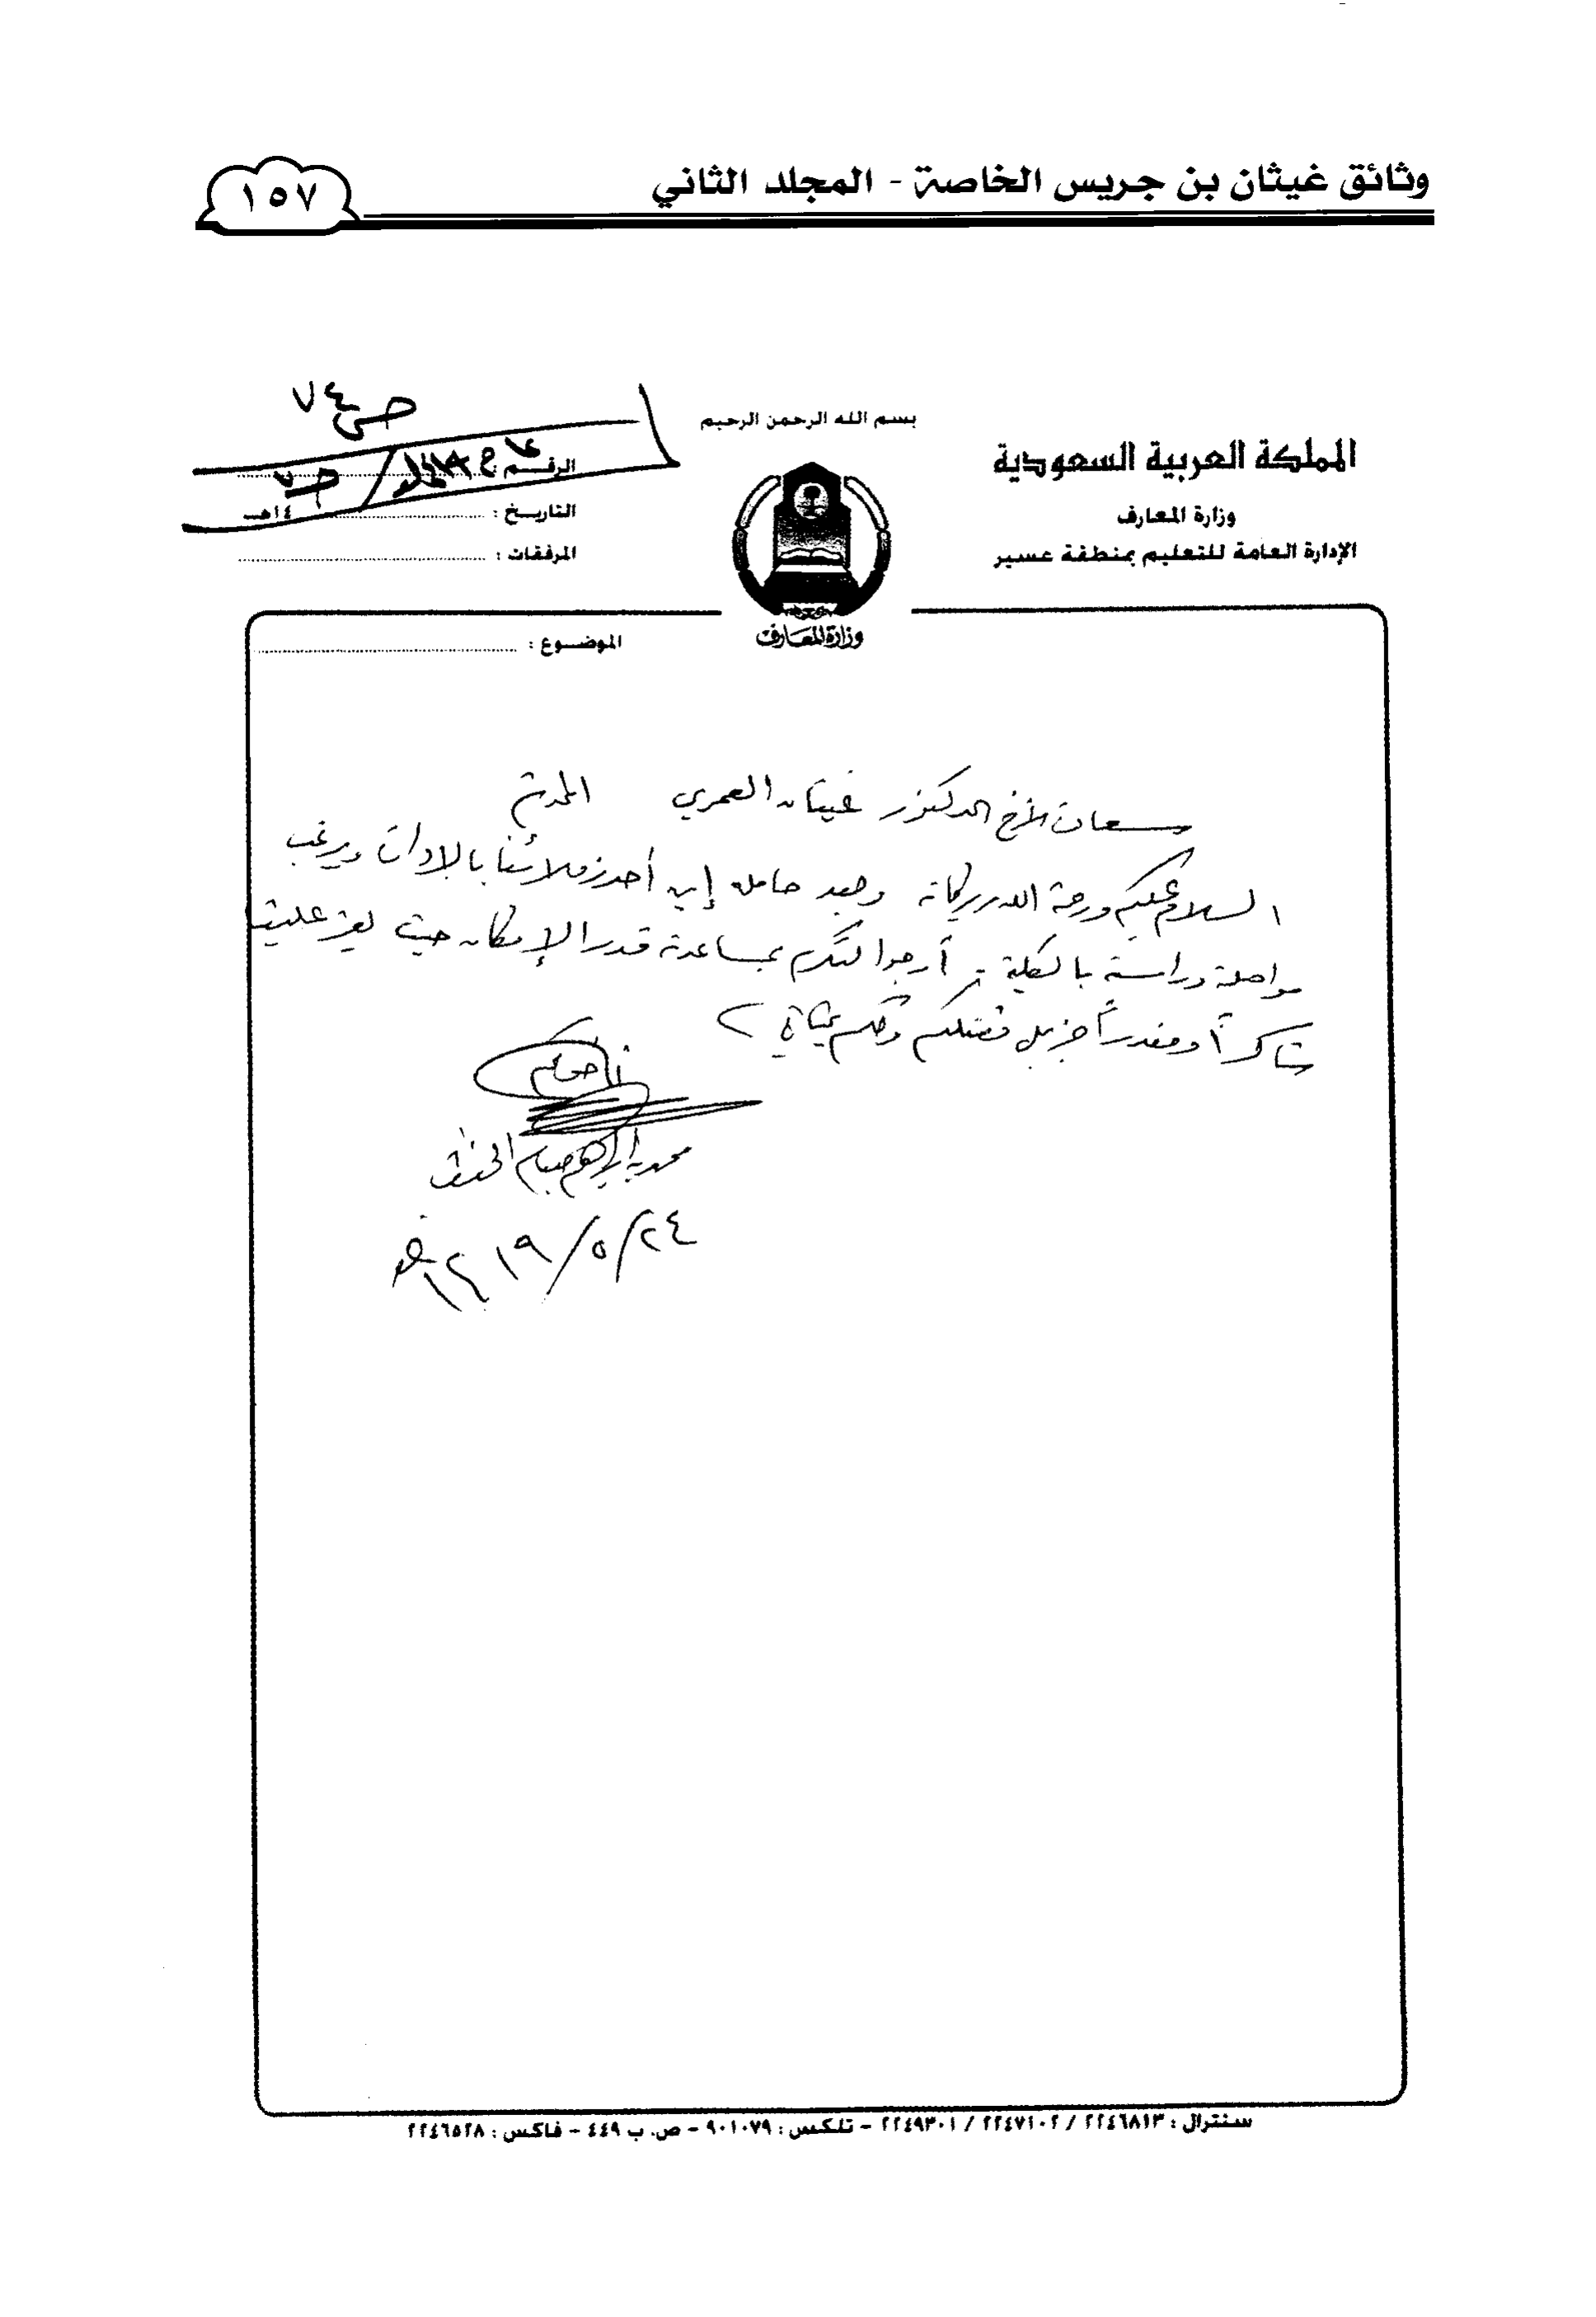 وثائق غيثان بن جريس الخاصة - المجلد الثاني
١٥٧
بسم الله الرحمن الرحيم
المملكة العربية السعودية
وزارة المعارف
الإدارة العامة للتعليم بمنطقة عسير
وزارة المعارف
ص ٧٤
الرقم :
التاريخ : ١٤هـ
المرفقات :
الموضوع :
سعادة الأخ الدكتور غيثان العمري المحترم
السلام عليكم ورحمة الله وبركاته وبعد حامله إليه أحد زملائنا بالإدارة ويرغب
مواصلة دراسته بالكلية . أرجوا التكرم بمساعدته قدر الإمكان حيث يعز علينا
شاكراً ومقدراً جزيل فضلكم ولكم تحياتي
أخوكم
محمد إبراهيم
٢٤/٥/١٤١٩هـ
سنترال : ٢٢٤٦٨١٣ / ٢٢٤٧١٠٢ / ٢٢٤٩٣٠١ - تلكس : ٩٠١٠٧٩ - ص. ب ٤٤٩ - فاكس : ٢٢٤٦٥٢٨